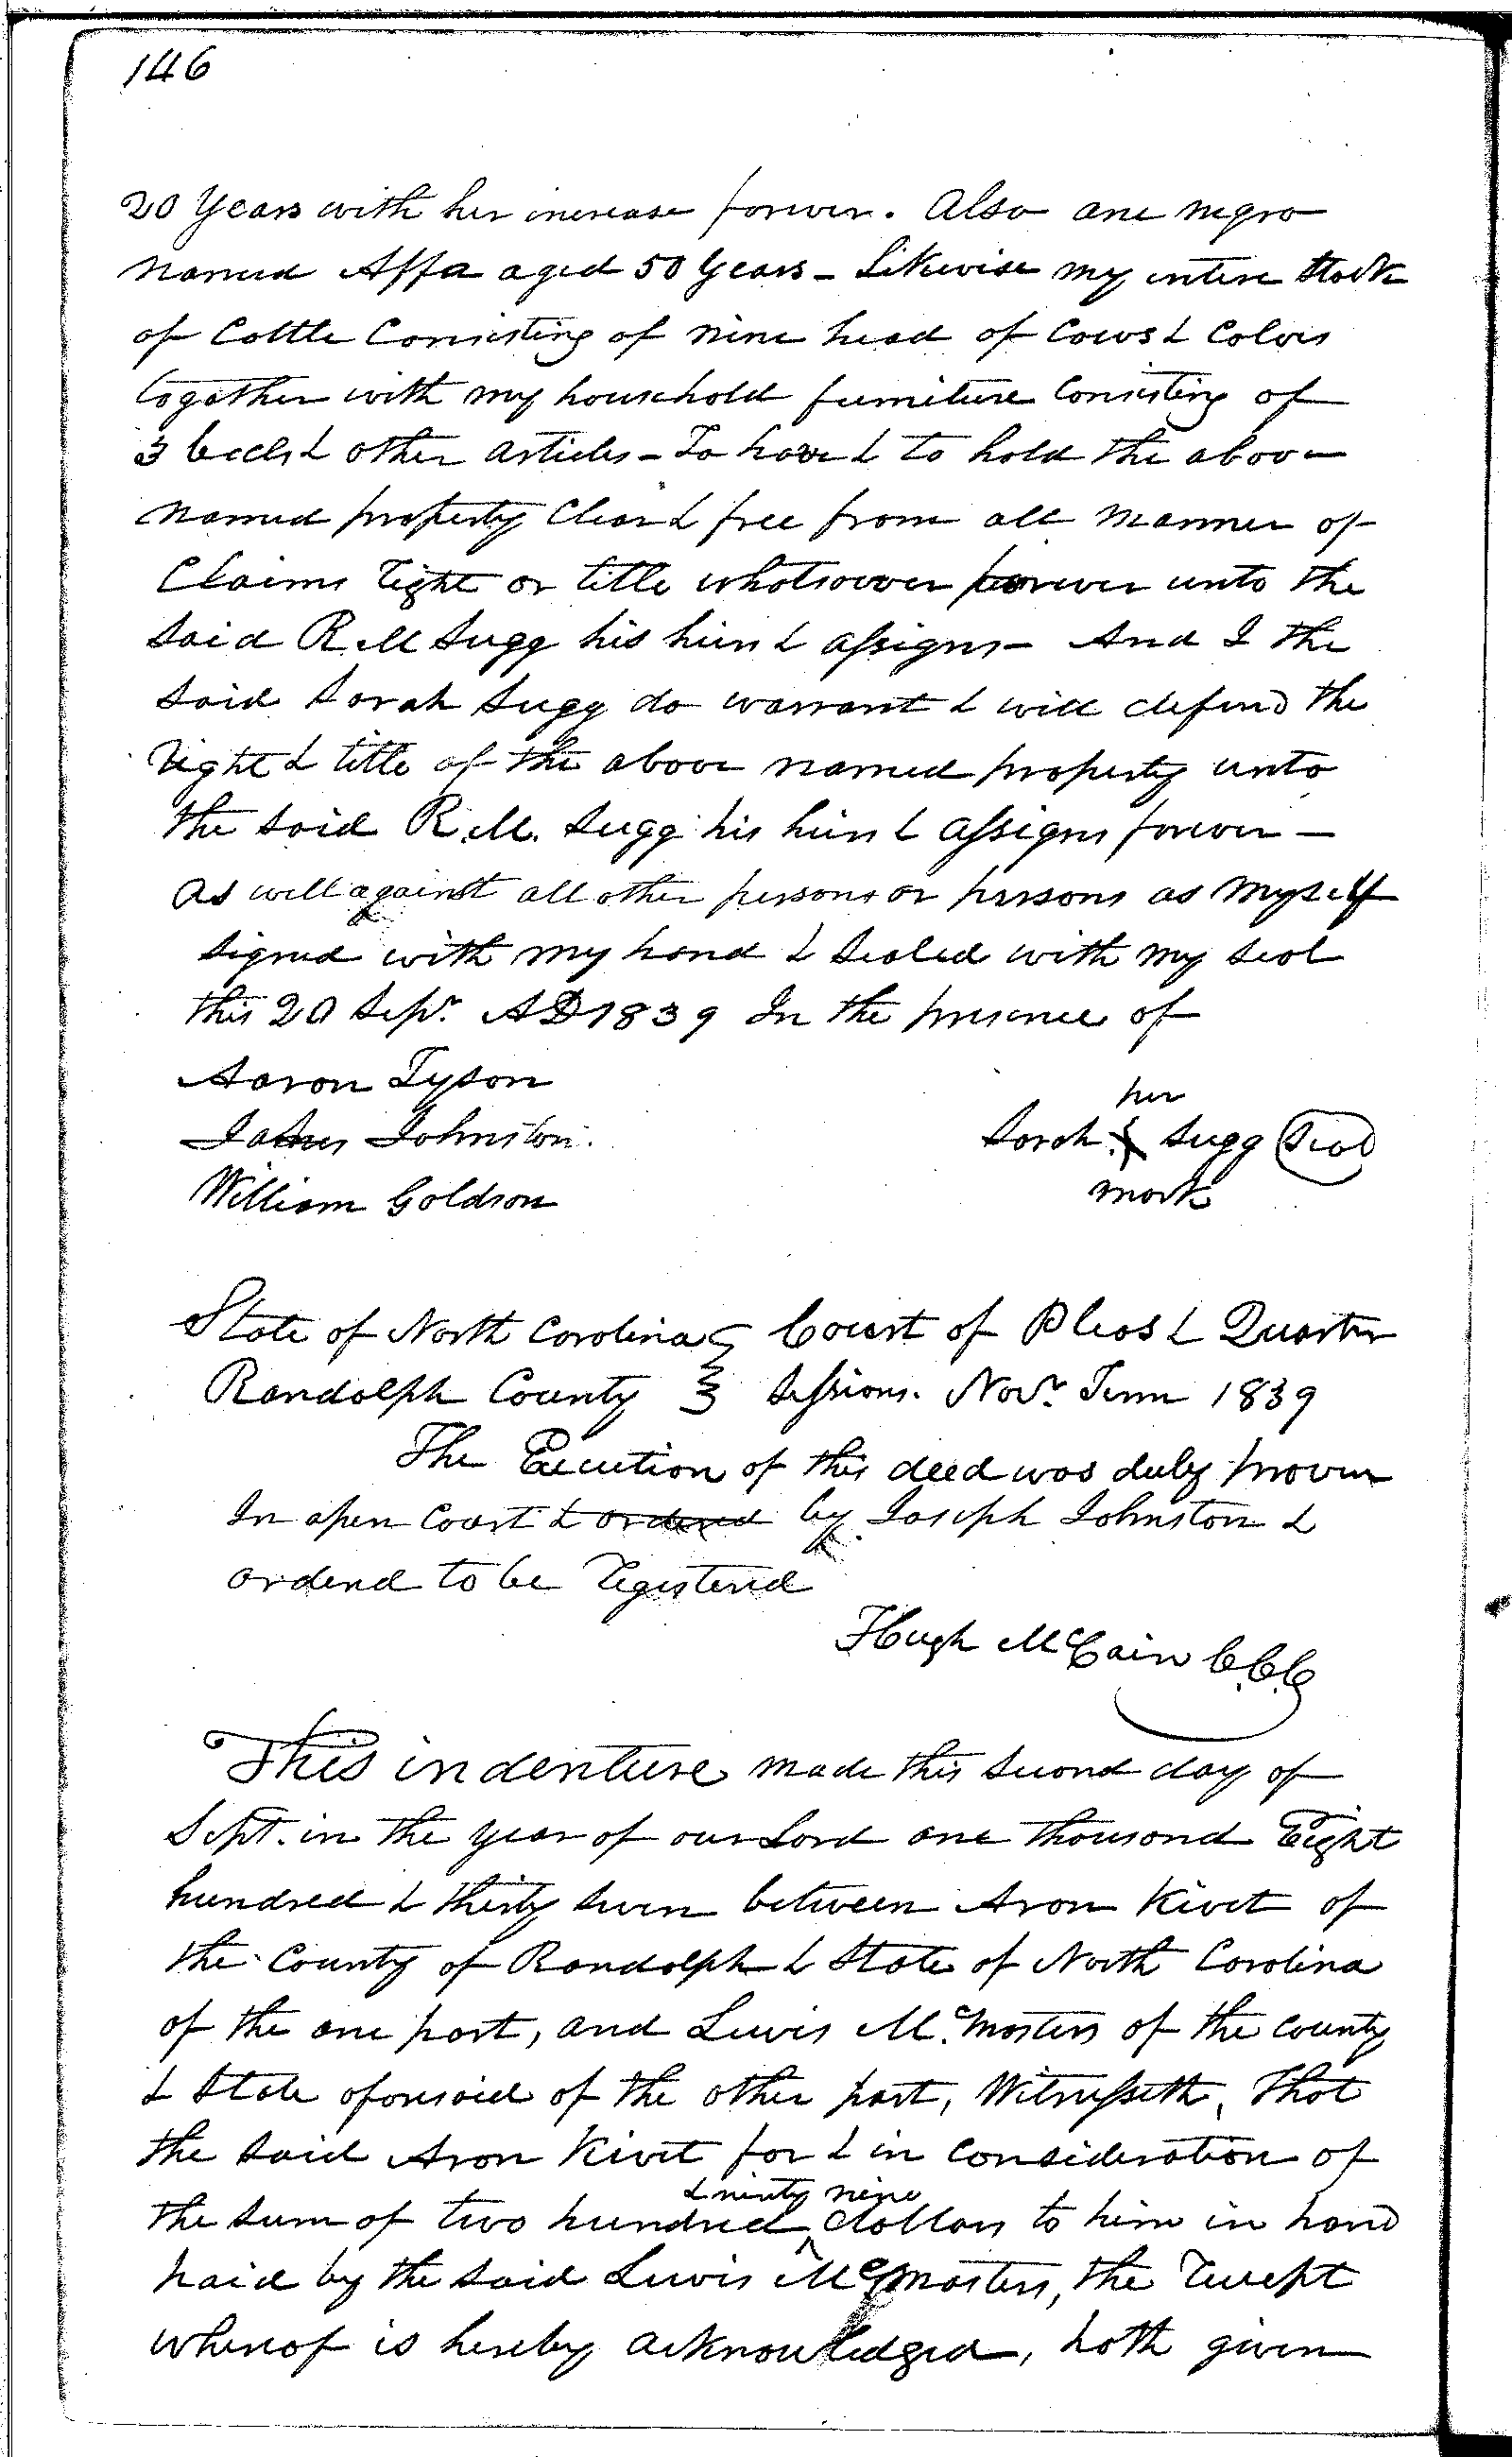 146
20 Years with her increase forever. Also one negro
named Affa aged 50 Years - Likewise my entire stock
of Cattle Consisting of nine head of Cows & Calves
together with my household furniture Consisting of
3 beds & other articles - To have & to hold the above
named property Clear & free from all manner of
Claims right or title whatsoever forever unto the
said R. M Sugg his heirs & assigns - And I the
said Sarah Sugg do warrant & will defend the
right & title of the above named property unto
the said R. M. Sugg his heirs & assigns forever -
as well against all other persons or persons as myself
signed with my hand & sealed with my seal
this 20 Sepr. AD 1839 In the presence of
Aaron Tyson
her
James Johnston.
Sarah X Sugg Seal
William Goldson
mark
State of North Carolina } Court of Pleas & Quarter
Randolph County } Sessions. Novr. Term 1839
The Execution of this deed was duly proven
In open Court & ordered by Joseph Johnston &
ordered to be registered
Hugh McCain C.C.C
This indenture made this second day of
Sept. in the year of our Lord one thousand Eight
hundred & thirty seven between Aron Kivet of
the County of Randolph & State of North Carolina
of the one part, and Lewis McMasters of the County
& State aforesaid of the other part, Witnesseth, That
the said Aron Kivet for & in consideration of
& ninty nine
the sum of two hundred ^ dollars to him in hand
paid by the said Lewis McMasters, the receipt
whereof is hereby acknowledged, hath given